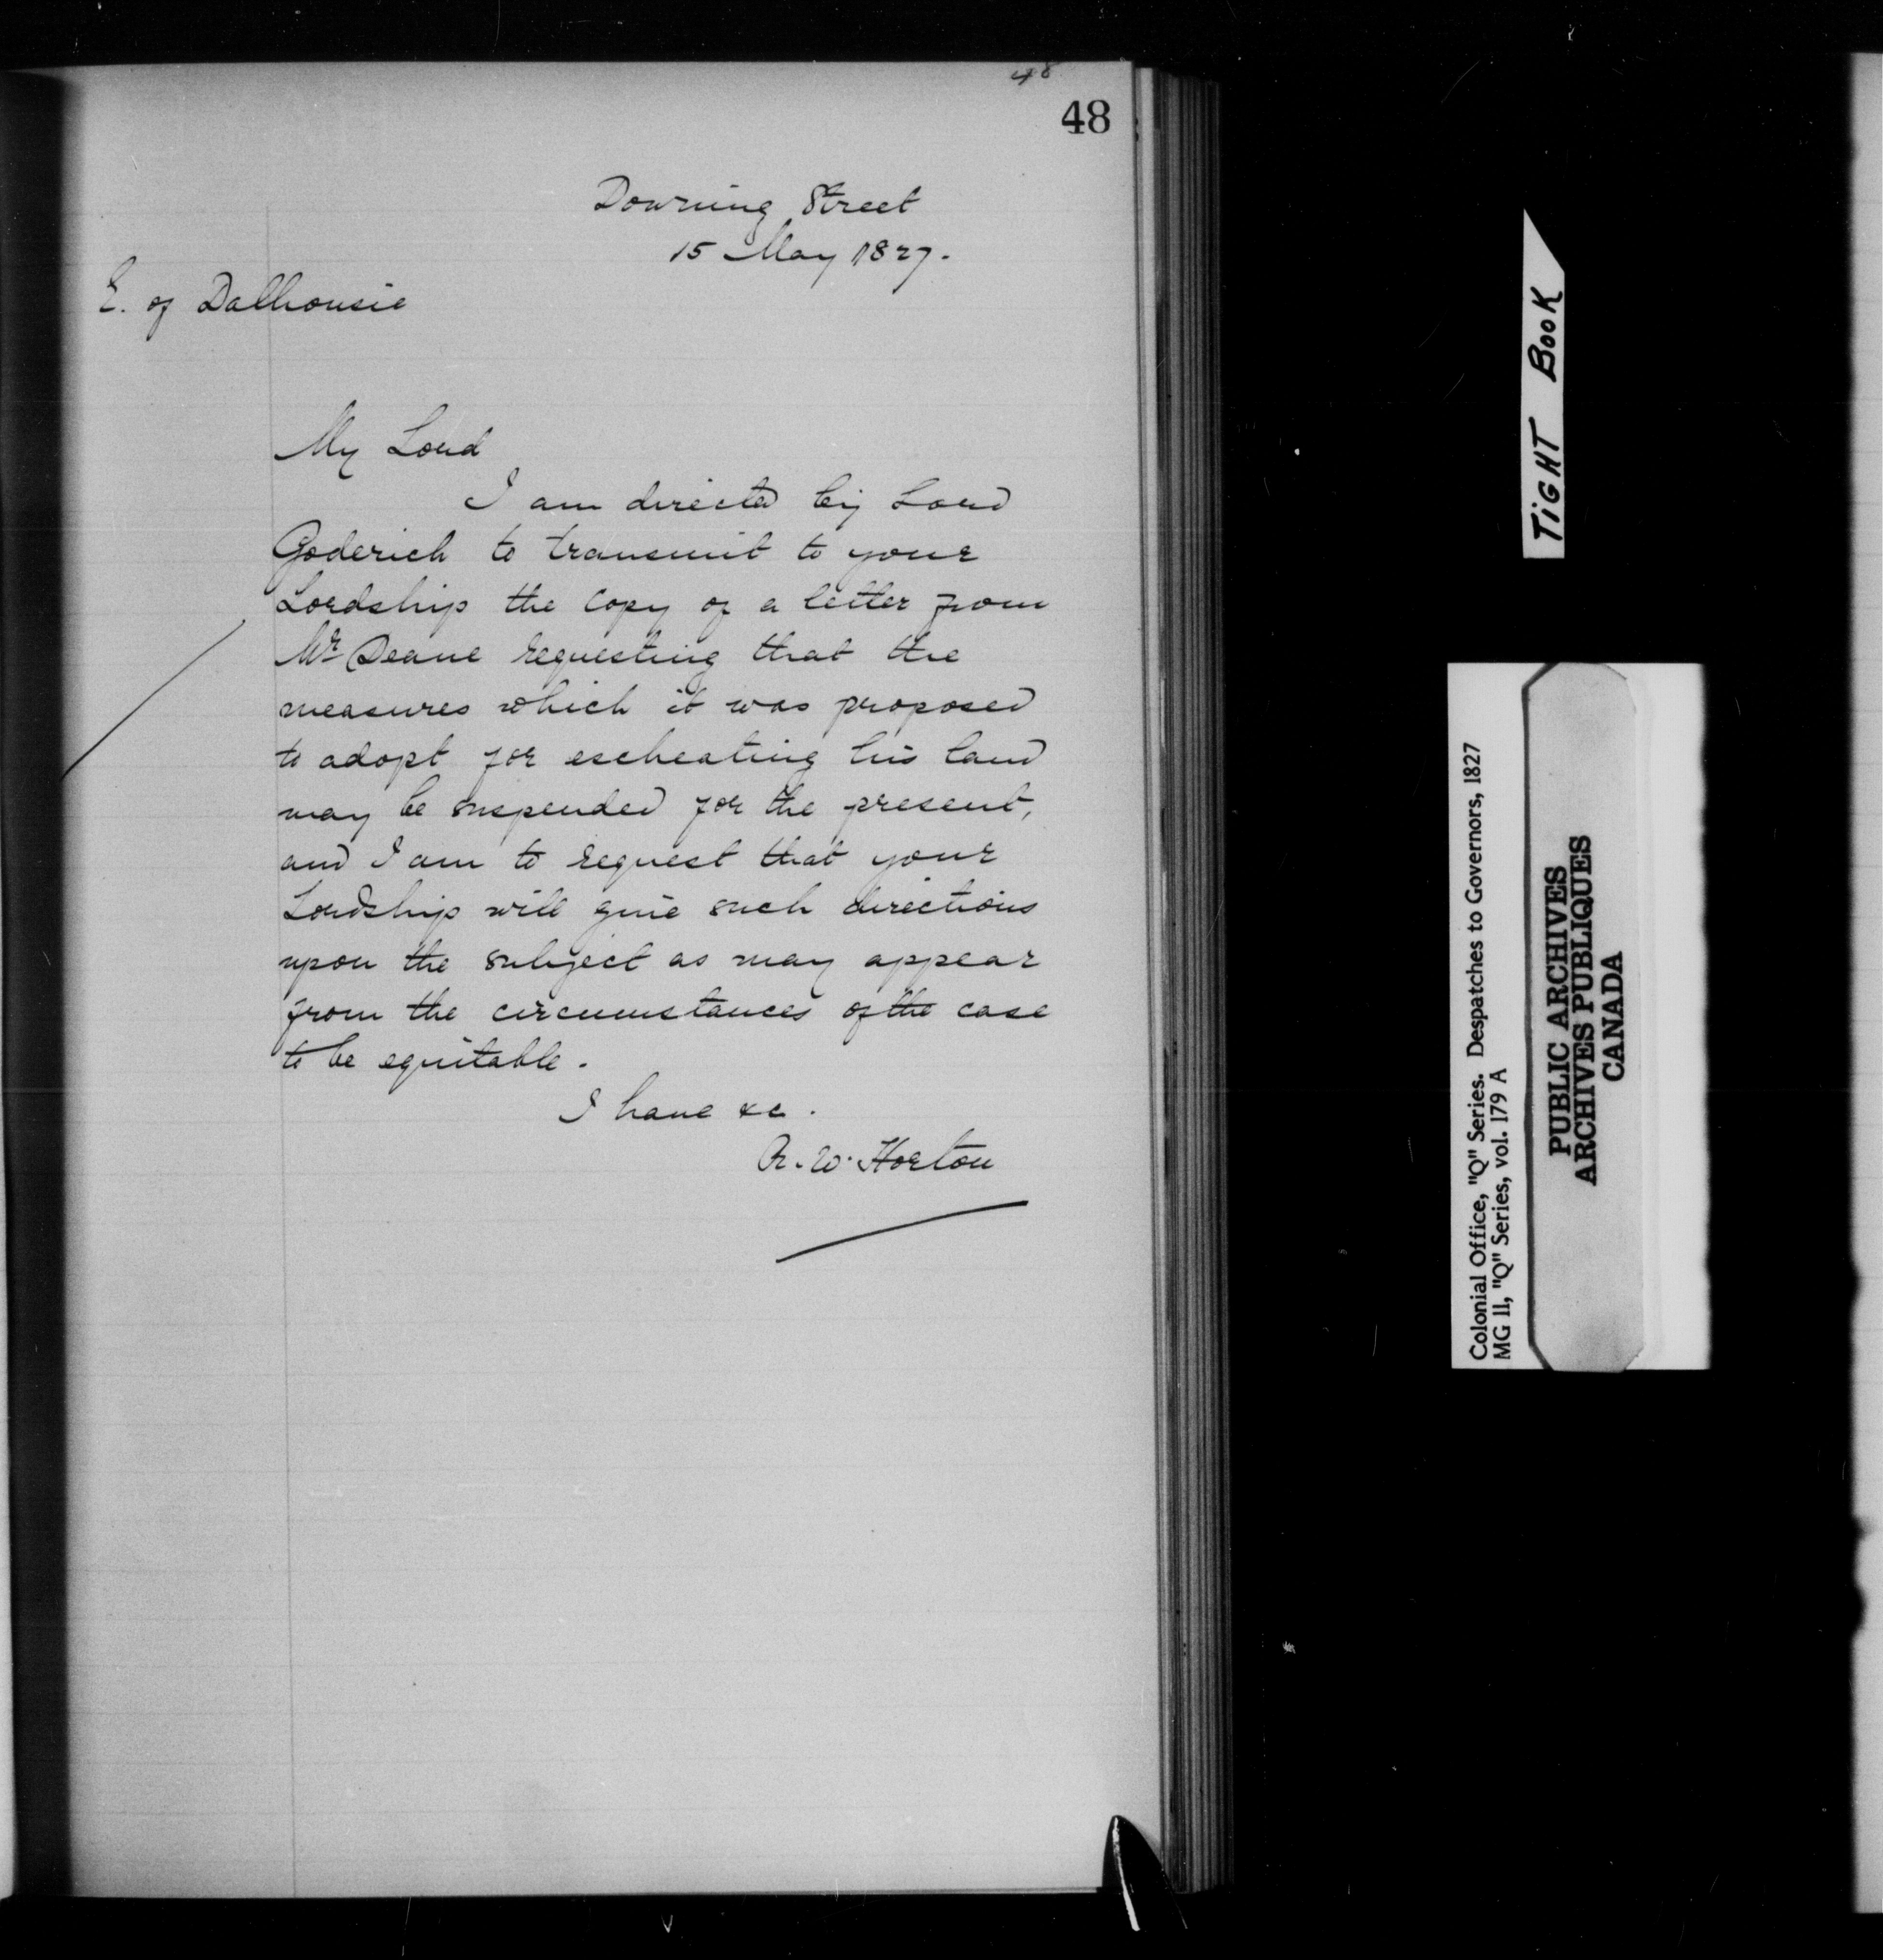 48
48
Downing Street
15 May 1827.
E. of Dalhousie
My Lord
I am directed by Lord
Goderich to transmit to your
Lordship the Copy of a letter from
Mr Deane requesting that the
measures which it was proposed
to adopt for escheating his land
may be suspended for the present,
and I am to request that your
Lordship will give such directions
upon the subject as may appear
from the circumstances of the case
to be equitable.
I have &c.
R. W. Horton
TIGHT BOOK
Colonial Office, "Q" Series. Despatches to Governors, 1827
MG 11, "Q" Series, vol. 179 A
PUBLIC ARCHIVES
ARCHIVES PUBLIQUES
CANADA